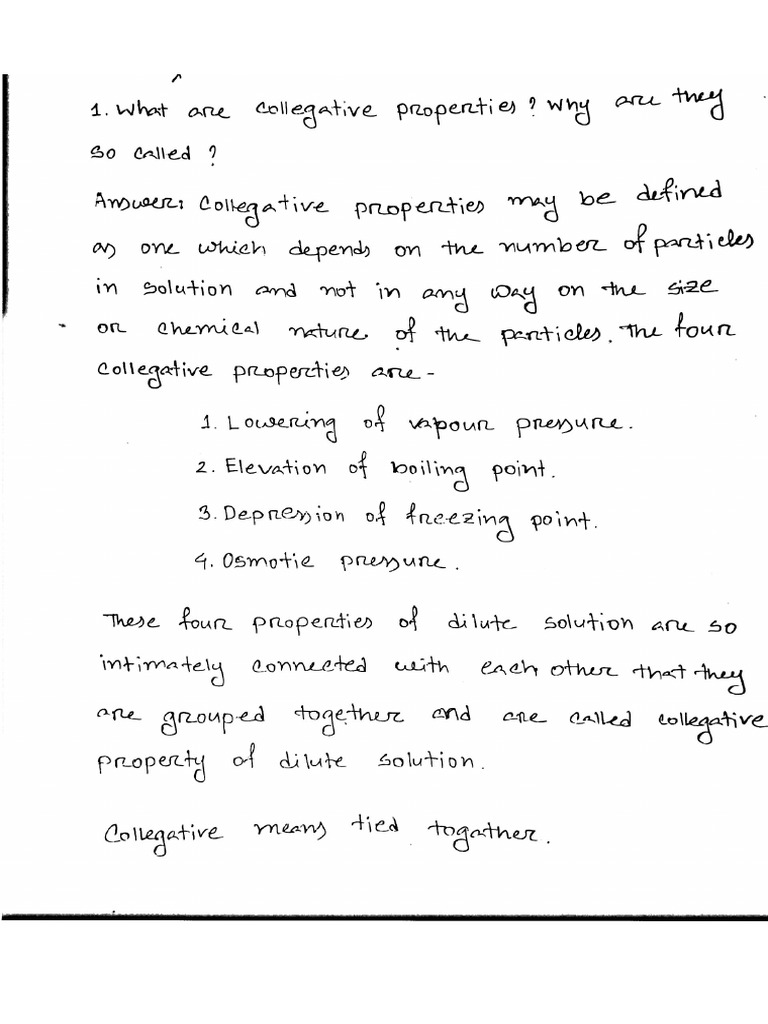 1. What are collegative properties? Why are they
so called?
Answer: Collegative properties may be defined
as one which depends on the number of particles
in solution and not in any way on the size
or chemical nature of the particles. The four
collegative properties are -
1. Lowering of vapour pressure.
2. Elevation of boiling point.
3. Depression of freezing point.
4. Osmotic pressure.
These four properties of dilute solution are so
intimately connected with each other that they
are grouped together and are called collegative
property of dilute solution.
Collegative means tied togather.